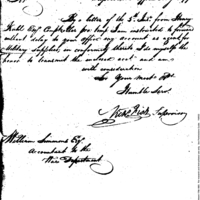 By a letter of the 3d. Inst. from Henry
Kuhl Esqr. Comptroller pro temp I am instructed to forward
without delay to your office my account as agent for
Military Supplies, in conformity thereto I do myself the
honor to transmit the enclosed acct. and am
with consideration
Sir Your most Obt.
Humble Serv.
Supervisor
William Simmons Esq.
Accountant to the
War Department